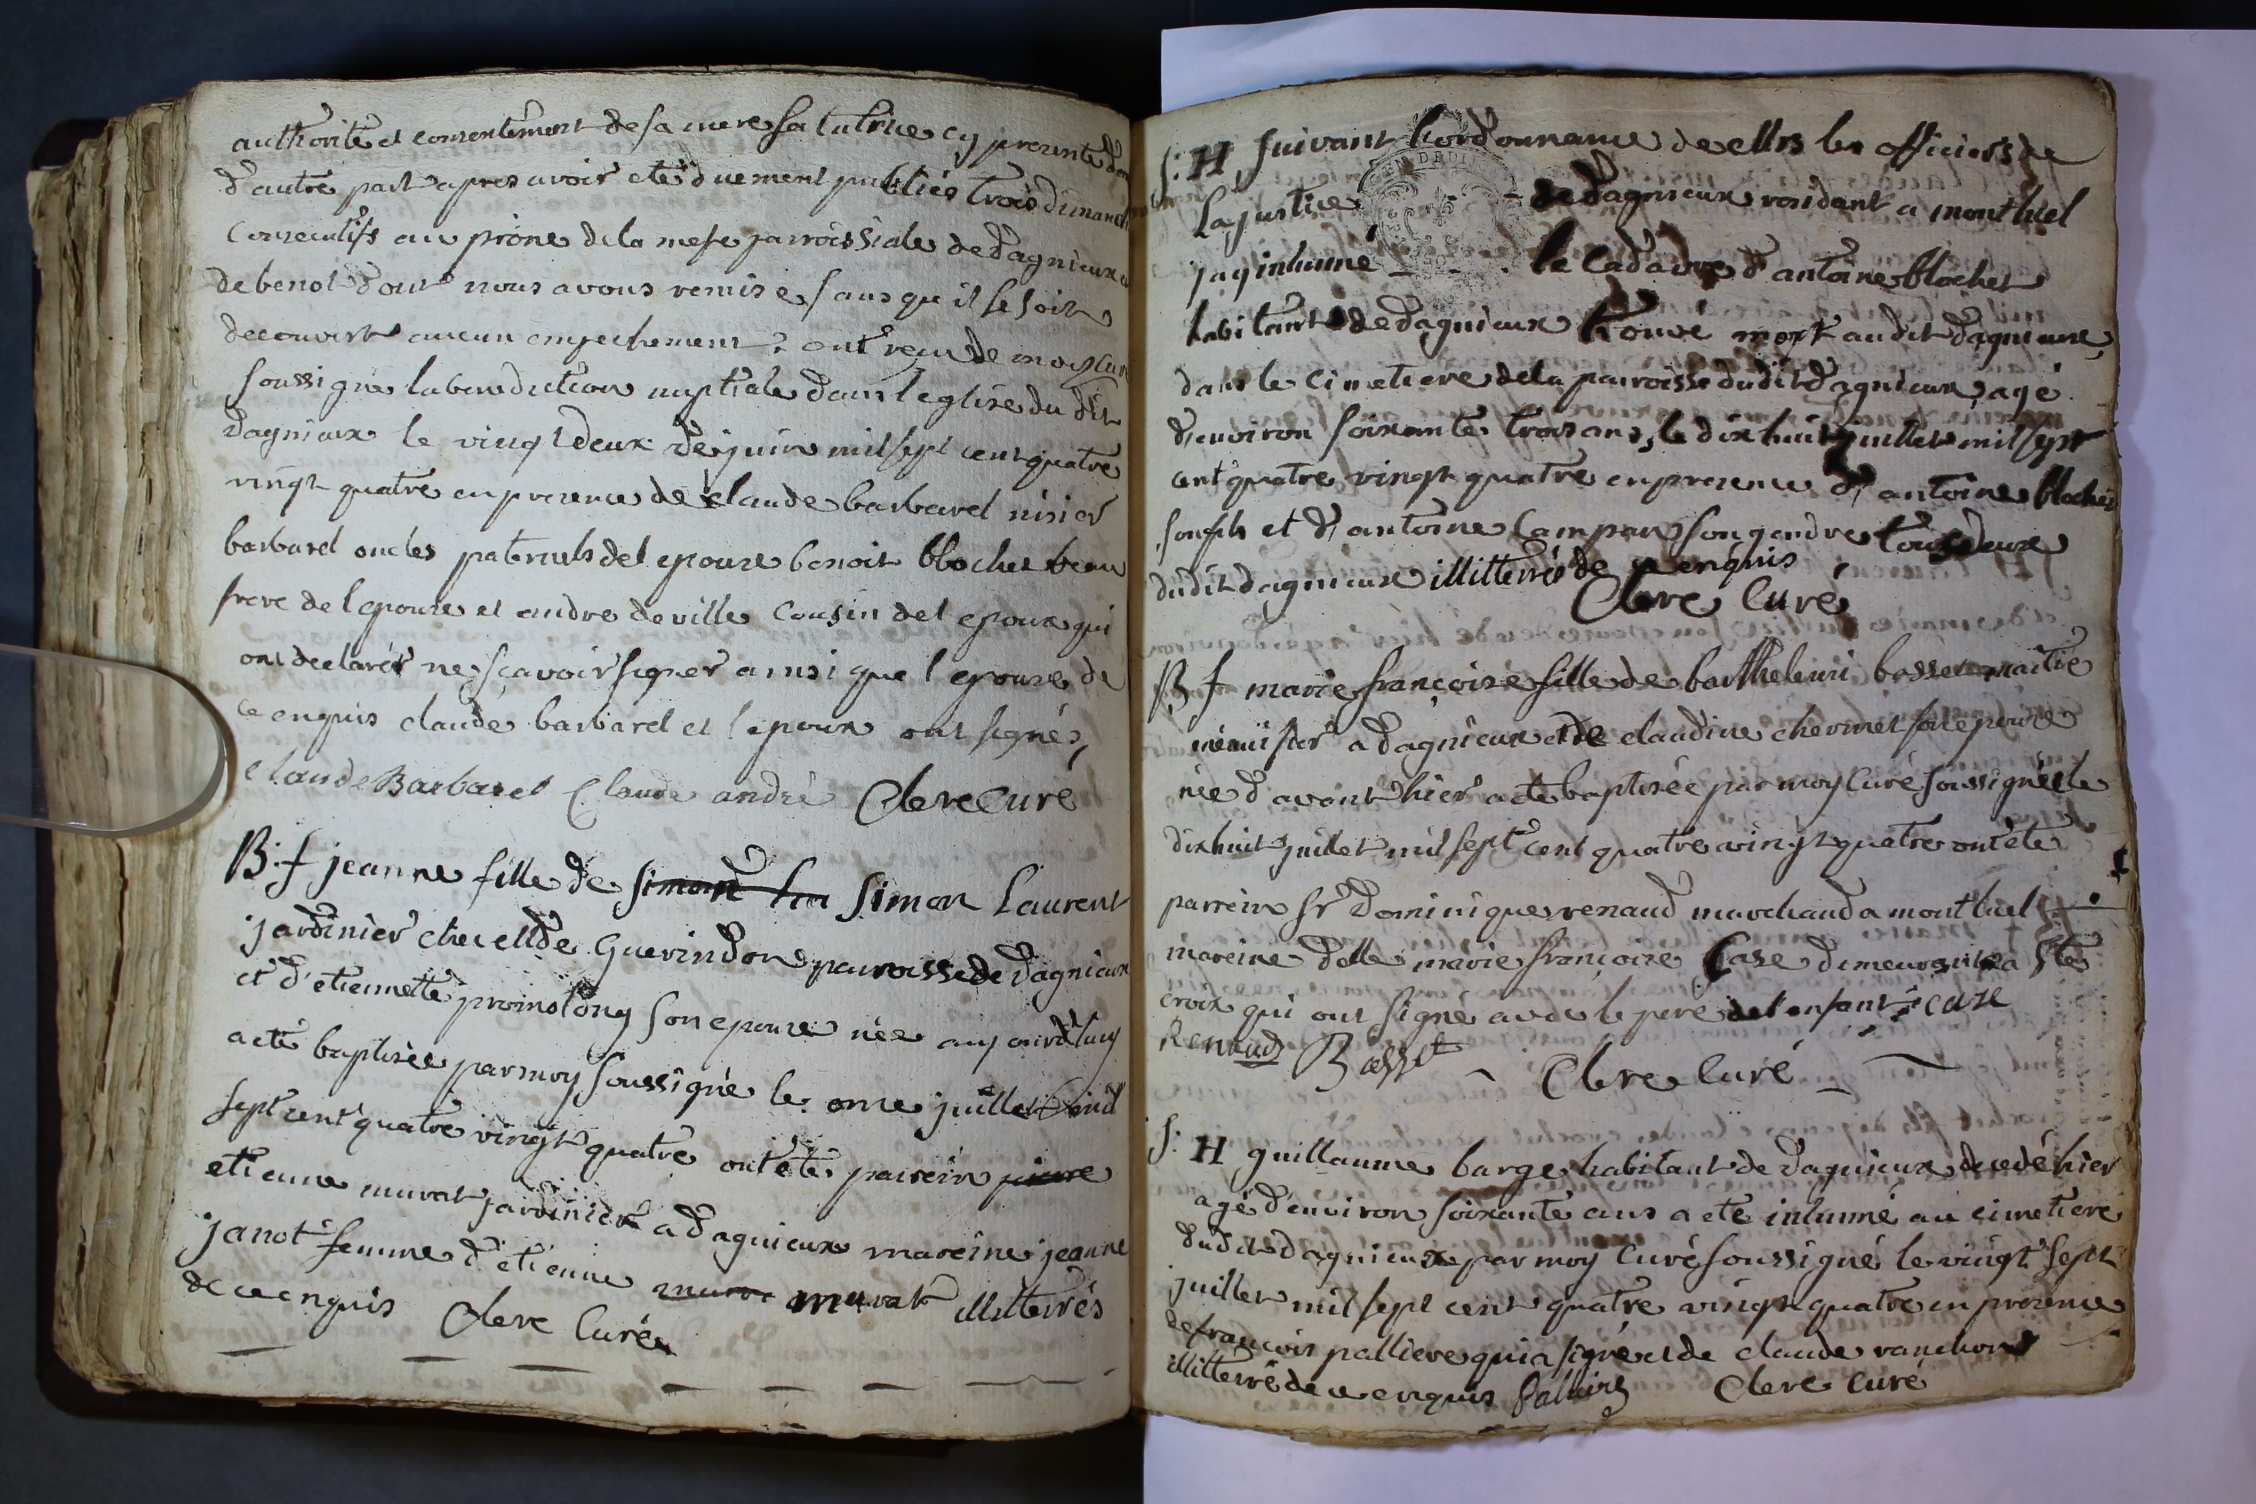 authorité et consentement de sa mere sa tutrice cy presente
d'autre part apres avoir eté duement publiés trois dimanch
consecutifs au prône de la messe parroissiale de dagnieux
de benot dont nous avons remise sans qu'il se soit
decouvert aucun empechement ont reçu de moy curé
soussigné la benediction nuptiale dans l'eglise du dit
dagnieux le vingt deux de juin mil sept cent quatre
vingt quatre en presence de claude barbarel nisier
barbarel oncles paternels de l'epouse benoit blochet beau
frere de l'epouse et andre deville cousin de l'epoux qui
ont declarés ne sçavoir signer ainsi que l'epouse de
ce enquis claude barbarel et l'epoux ont signés,
claude Barbarel Claude andré Clere Curé
B. f jeanne fille de simon Laurent
jardinier chez de Guerindon parroisse de dagnieux
et d'etiennette son epouse née aujourd'huy
a eté baptisée par moy soussigné le onze juillet mil
sept cent quatre vingt quatre ont eté parrein
etienne murat jardinier a dagnieux mareine jeanne
janot femme d'etienne murat illitterés
de ce enquis Clere Curé
S: H suivant l'ordonnance de les officiers de
La justice de dagnieux residant a montluel
jay inhumé le Cadavre d'antoine blochet
habitant de dagnieux trouvé mort au dit dagnieux
dans le cimetiere de la parroisse du dit dagnieux, agé
d'environ soixante trois ans, le dix huit juillet mil sept
cent quatre vingt quatre en presence d'antoine blochet
son fils et d'antoine son gendre tous deux
du dit dagnieux illitterés de ce enquis
Clere Curé
B f marie françoise fille de barthelemi basset maitre
menuisier a dagnieux et de claudine chermet son epouse
née d'avant hier a eté baptisée par moy Curé soussigné le
dix huit juillet mil sept cent quatre vingt quatre ont eté
parrein sr Dominique renaud marchand a montluel
mareine delle marie françoise Case demeurant a Ste
croix qui ont signé avec le pere de l'enfant case
Renaud Basset Clere Curé
S: H guillaume barge habitant de dagnieux decedé hier
agé d'environ soixante ans a eté inhumé au cimetiere
du dit dagnieux par moy Curé soussigné le vingt sept
juillet mil sept cent quatre vingt quatre en presence
de françois palliere qui a signé et de claude
illitteré de ce enquis Clere Curé